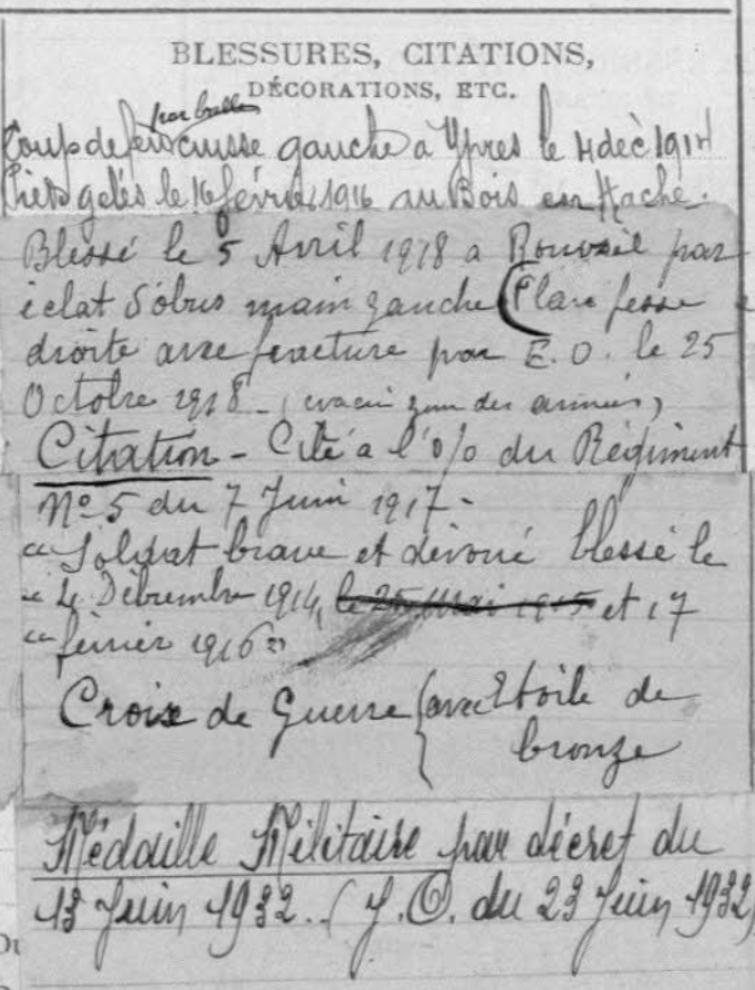 BLESSURES, CITATIONS,
DÉCORATIONS, ETC.
par balle
Coup de feu cuisse gauche a Ypres le 4 déc 1914
Pieds gelés le 16 février 1916 au Bois en Hache.
Blessé le 5 Avril 1918 a Rouvrel par
éclat d'obus main gauche (Plaie fesse
droite avec fracture par E.O. le 25
Octobre 1918 - (évacué zone des armées)
Citation - Cité a l'o/o du Régiment
No 5 du 7 Juin 1917 -
"Soldat brave et dévoué blessé le
" 4 Décembre 1914, le 25 Mai 1915 et 17
" février 1916"
Croix de Guerre (avec Etoile de
bronze
Médaille Militaire par décret du
13 Juin 1932. (J.O. du 23 Juin 1932)